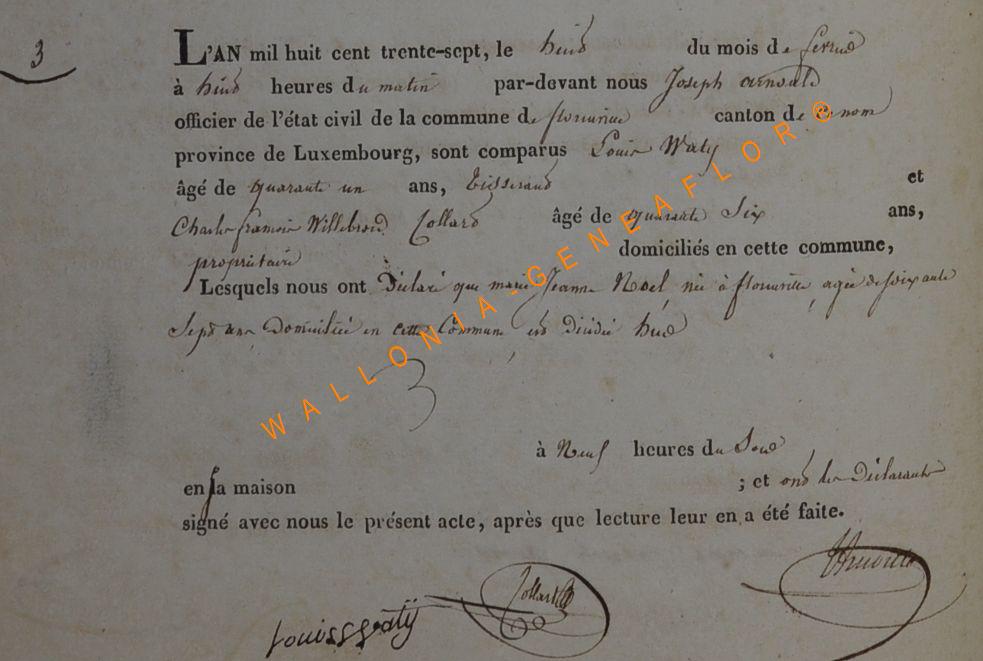 3
L'AN mil huit cent trente-sept, le huit du mois de fevrier
à huit heures du matin par-devant nous Joseph arnould
officier de l'état civil de la commune de florenville canton de
province de Luxembourg, sont comparus Louis Waty
âgé de quarante un ans, tisserand et
Charles francois Willebrord Collard âgé de quarante Six ans,
propriétaire domiciliés en cette commune,
Lesquels nous ont Déclaré que marie Jeanne Noel née à florenville, agée de soixante
Sept ans Domiciliée en cette Commune est décédée hier
à Neuf heures du Soir
en sa maison ; et ont les Déclarants
signé avec nous le présent acte, après que lecture leur en a été faite.
Louis Watÿ Collard
WALLONIA-GENEAFLOR®